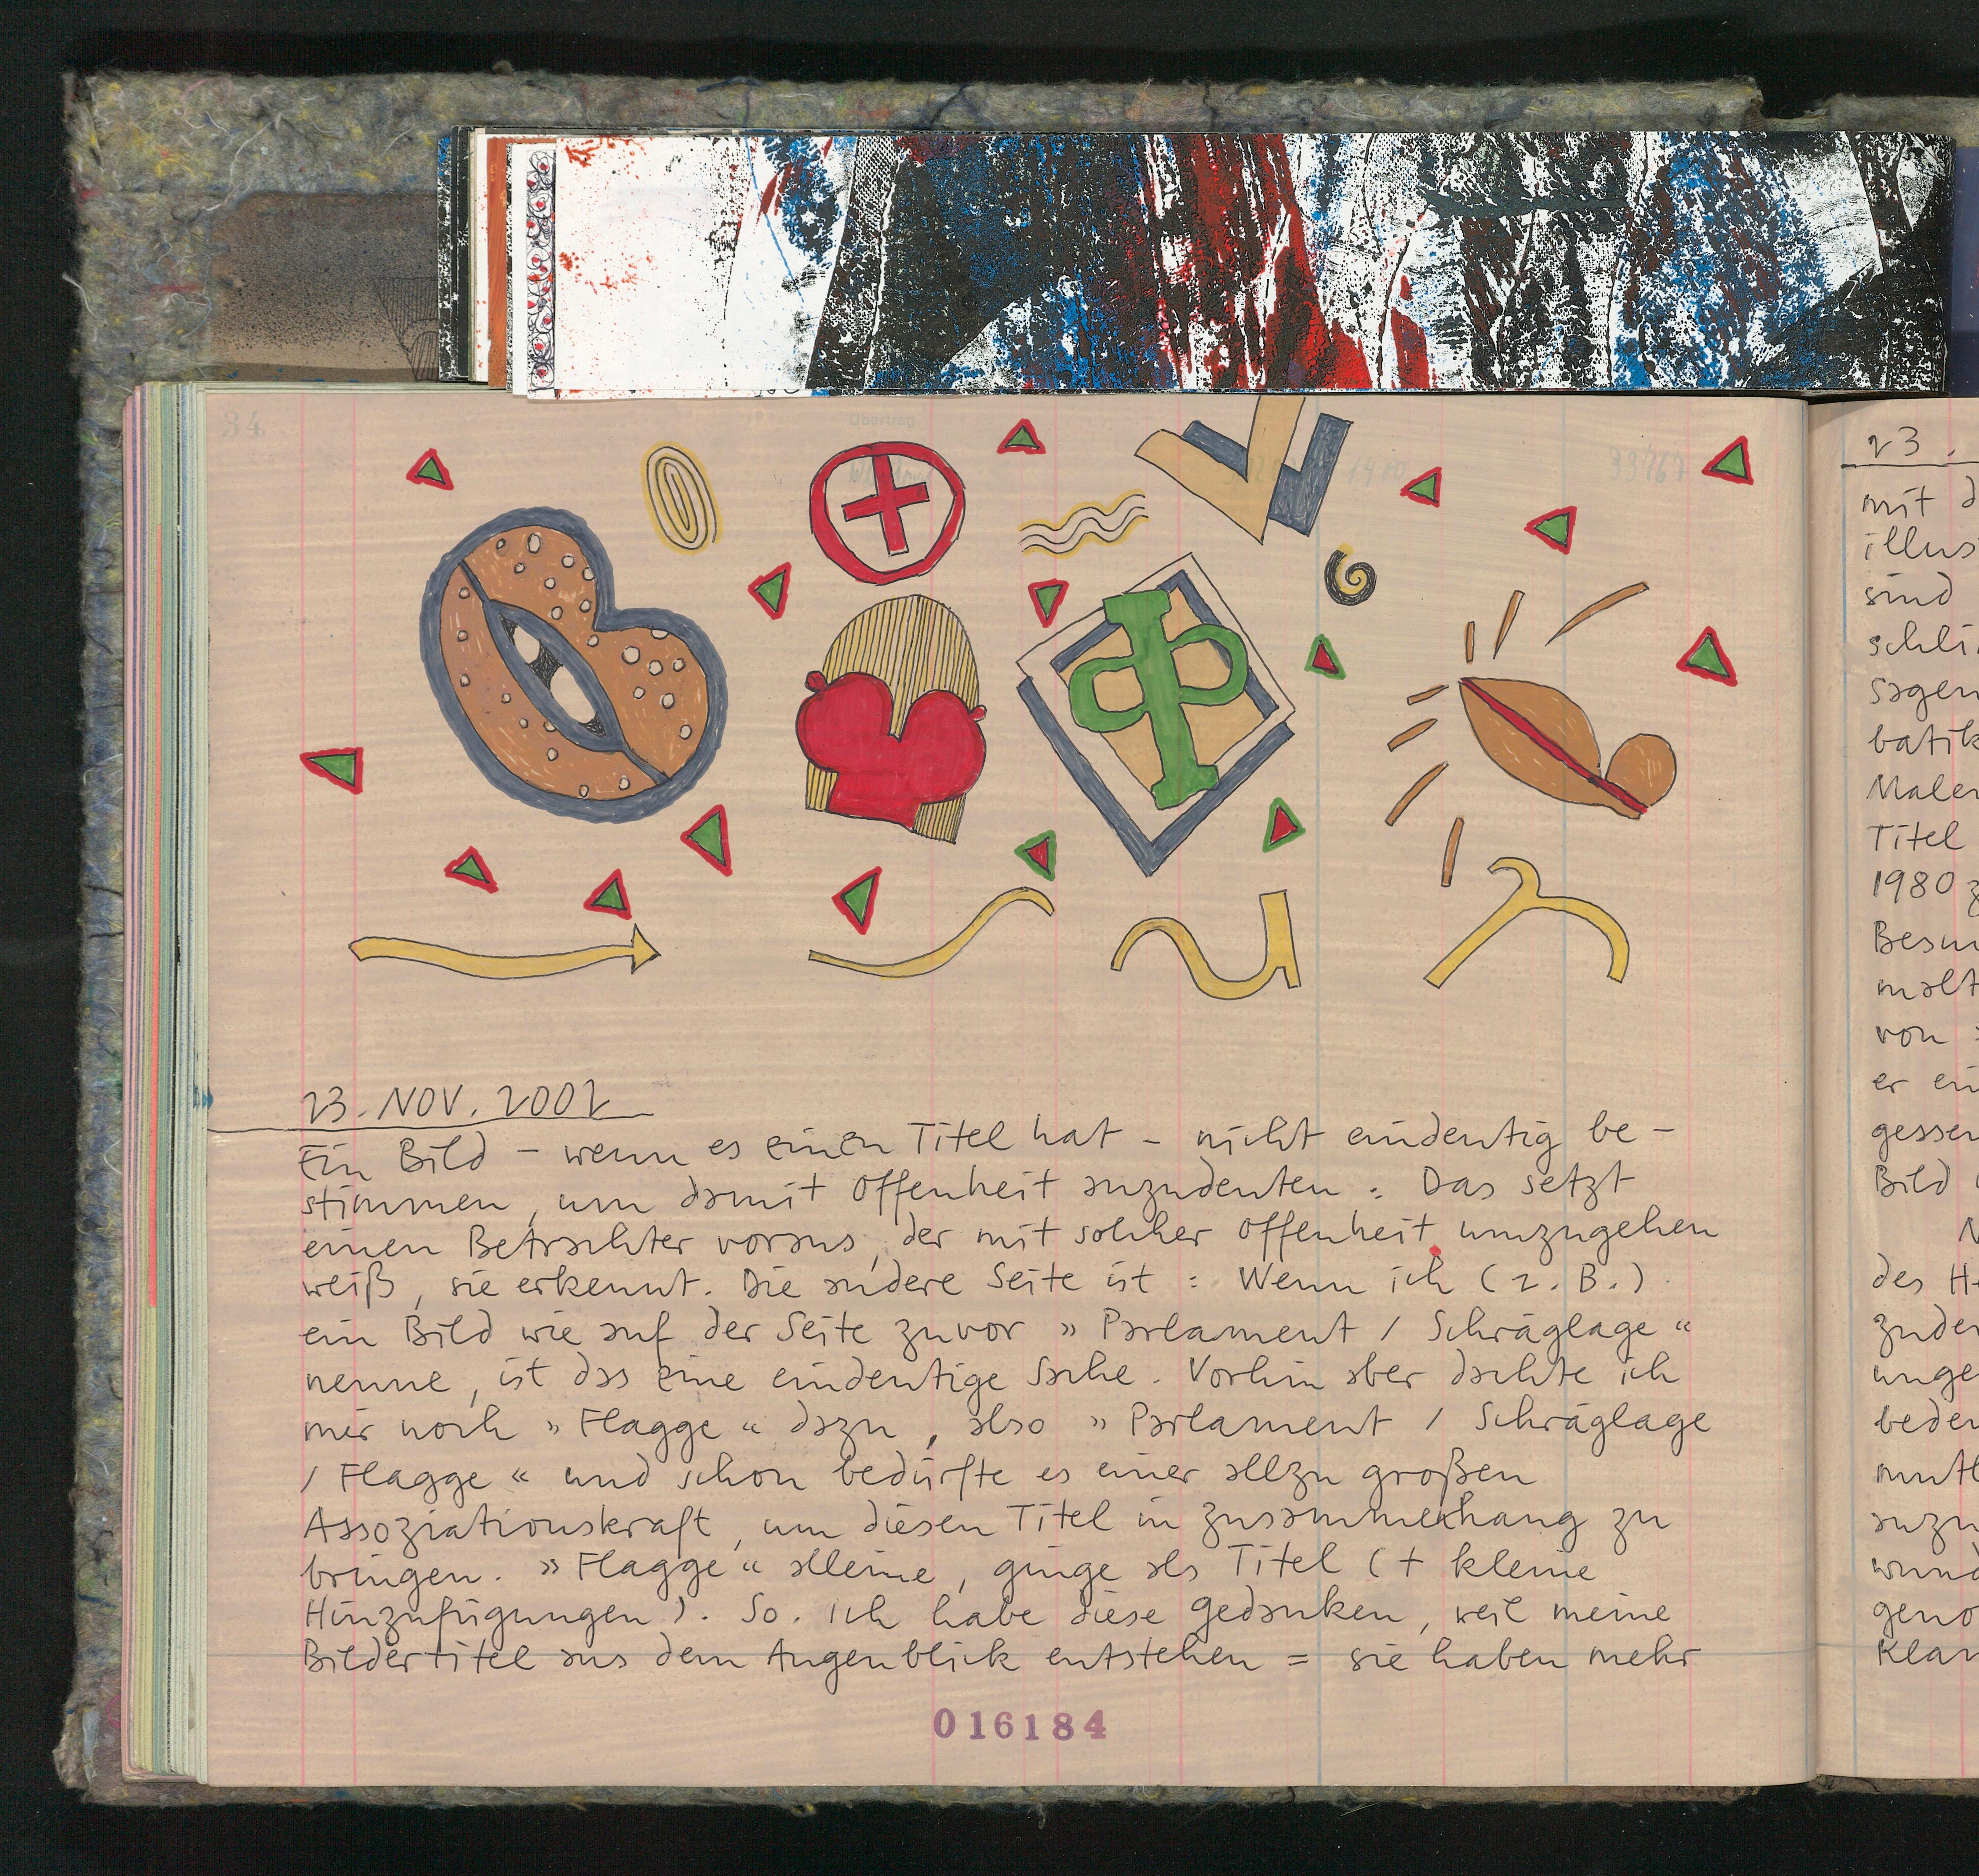 34
Übertrag
33767
23. NOV. 2002
Ein Bild – wenn es einen Titel hat – nicht eindeutig be–
stimmen, um damit Offenheit anzudeuten: Das setzt
einen Betrachter voraus, der mit solcher Offenheit umzugehen
weiß, sie erkennt. Die andere Seite ist: Wenn ich (z. B.)
ein Bild wie auf der Seite zuvor »Parlament / Schräglage«
nenne, ist das eine eindeutige Sache. Vorhin aber dachte ich
mir noch »Flagge« dazu, also »Parlament / Schräglage
/ Flagge« und schon bedürfte es einer allzu großen
Assoziationskraft, um diesen Titel in Zusammenhang zu
bringen. »Flagge« alleine, ginge als Titel (+ kleine
Hinzufügungen). So. Ich habe diese Gedanken, weil meine
Bildertitel aus dem Augenblick entstehen = sie haben mehr
016184
23.
mit d
illus
sind
schli
sagen
batik
Maler
Titel
1980 z
Besu
malt
von
er ein
gessen
Bild
N
des H
zuder
unge
beden
mutl
anzu
wund
geno
Klan